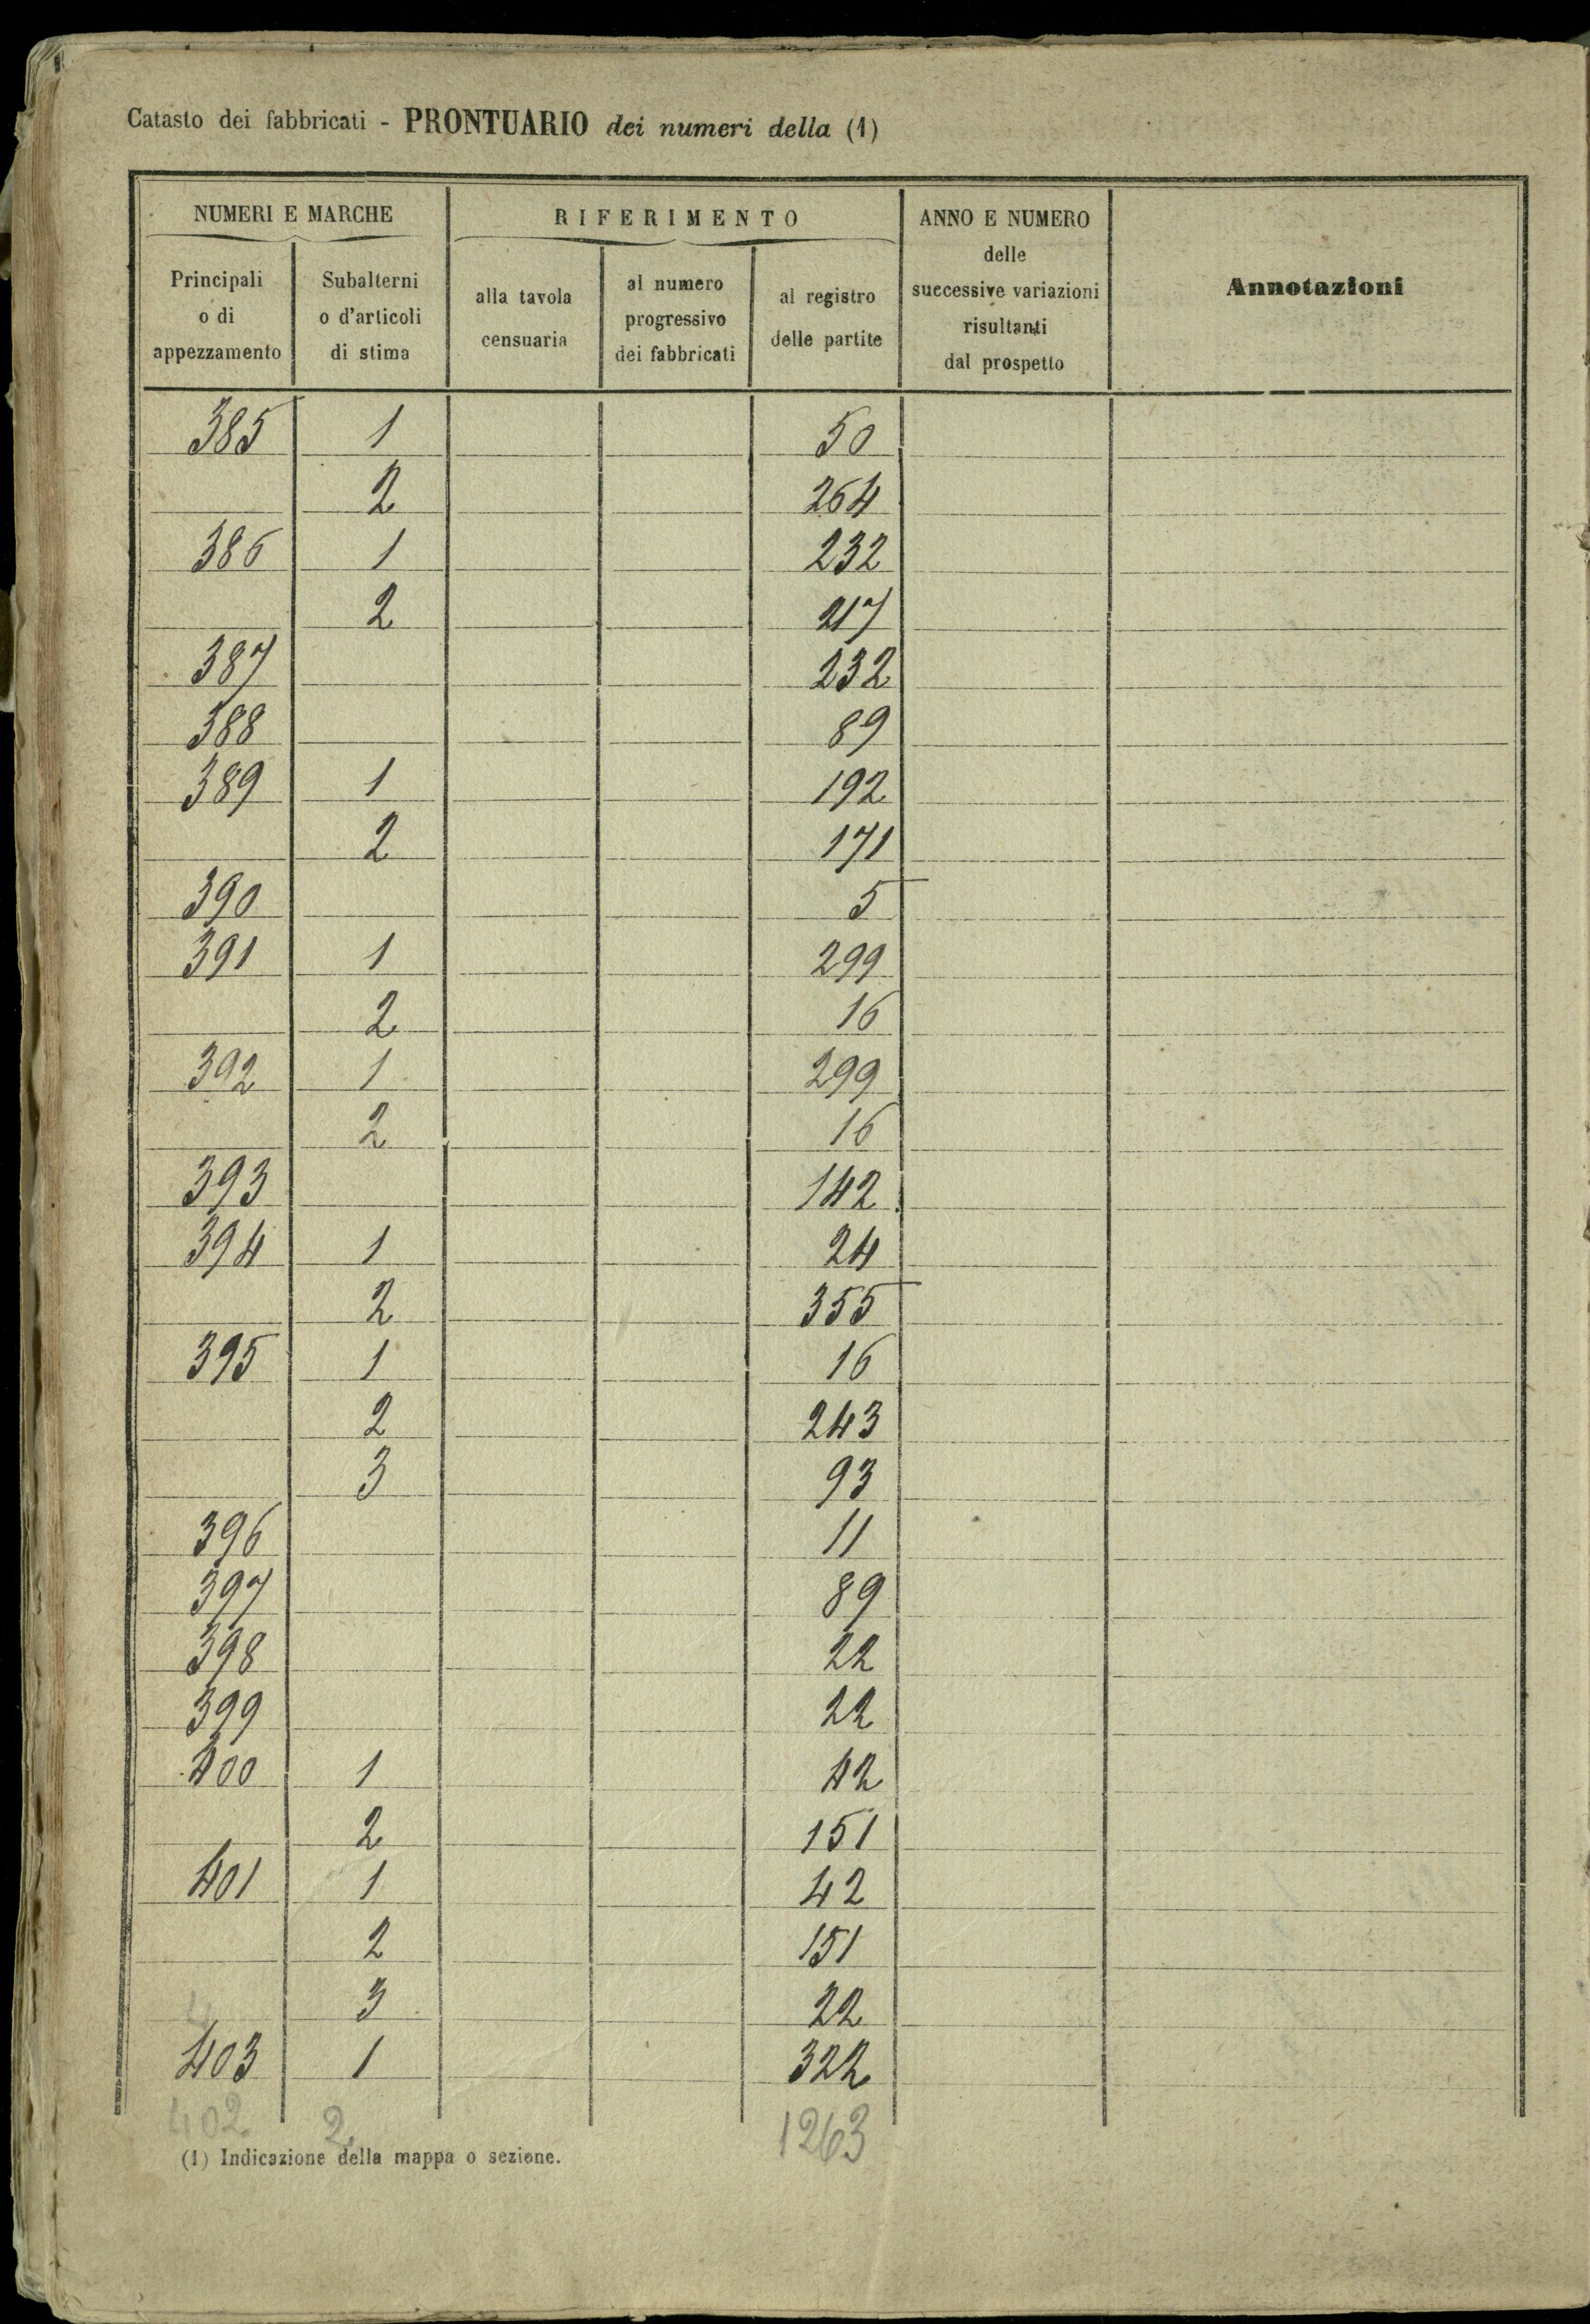 Catasto dei fabbricati - PRONTUARIO dei numeri della (1)
NUMERI E MARCHE
Principali o di appezzamento
Subalterni o d'articoli di stima
RIFERIMENTO
alla tavola censuaria
al numero progressivo dei fabbricati
al registro delle partite
ANNO E NUMERO delle successive variazioni risultanti dal prospetto
Annotazioni
385 1 50
2 264
386 1 232
2 217
387 232
388 89
389 1 192
2 171
390 5
391 1 299
2 16
392 1 299
2 16
393 142
394 1 24
2 355
395 1 16
2 243
3 93
396 11
397 89
398 22
399 22
400 1 42
2 151
401 1 42
2 151
3 22
403 1 322
402 2 1263
(1) Indicazione della mappa o sezione.